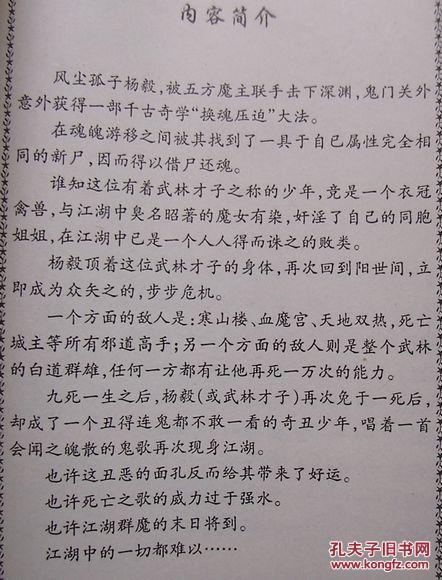 内容简介
风尘孤子杨毅，被五方魔主联手击下深渊，鬼门关外
意外获得一部千古奇学“换魂压迫”大法。
在魂魄游移之间被其找到了一具于自己属性完全相
同的新尸，因而得以借尸还魂。
谁知这位有着武林才子之称的少年，竞是一个衣冠
禽兽，与江湖中臭名昭著的魔女有染，奸淫了自己的同胞
姐姐，在江湖中已是一个人人得而诛之的败类。
杨毅顶着这位武林才子的身体，再次回到阳世间，立
即成为众矢之的，步步危机。
一个方面的敌人是：寒山楼、血魔宫、天地双热，死亡
城主等所有邪道高手；另一个方面的敌人则是整个武林
的白道群雄，任何一方都有让他再死一万次的能力。
九死一生之后，杨毅（或武林才子）再次免于一死后，
却成了一个丑得连鬼都不敢一看的奇丑少年，唱着一首
会闻之魄散的鬼歌再次现身江湖。
也许这丑恶的面孔反而给其带来了好运。
也许死亡之歌的威力过于强水。
也许江湖群魔的末日将到。
江湖中的一切都难以……
孔夫子旧书网
KONGFZ.COM